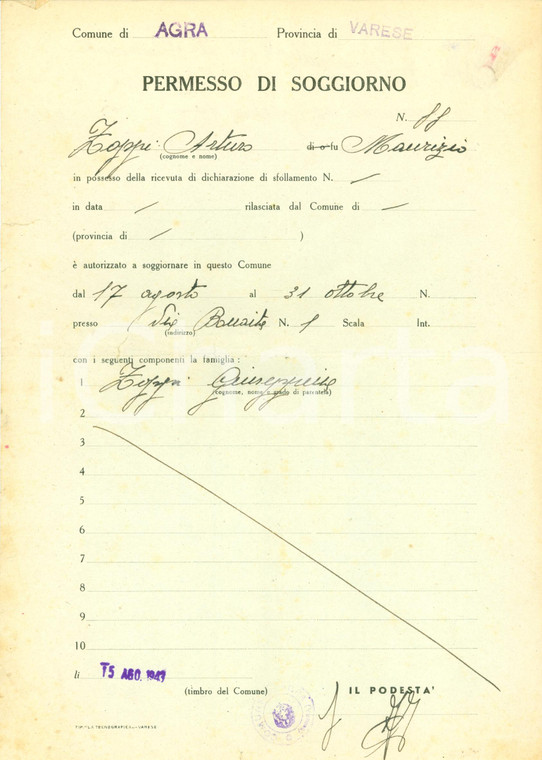 Comune di AGRA Provincia di VARESE
PERMESSO DI SOGGIORNO
N. 88
Zoppi Arturo di o fu Maurizio
(cognome e nome)
in possesso della ricevuta di dichiarazione di sfollamento N. /
in data / rilasciata dal Comune di /
(provincia di / )
è autorizzato a soggiornare in questo Comune
dal 17 agosto al 31 ottobre N.
presso N. 1 Scala Int.
(indirizzo)
con i seguenti componenti la famiglia :
1 Zoppi Giuseppina
(cognome, nome e grado di parentela)
2
3
4
5
6
7
8
9
10
li 15 AGO. 1943
(timbro del Comune) IL PODESTA'
TIP. "LA TECNOGRAFICA" - VARESE